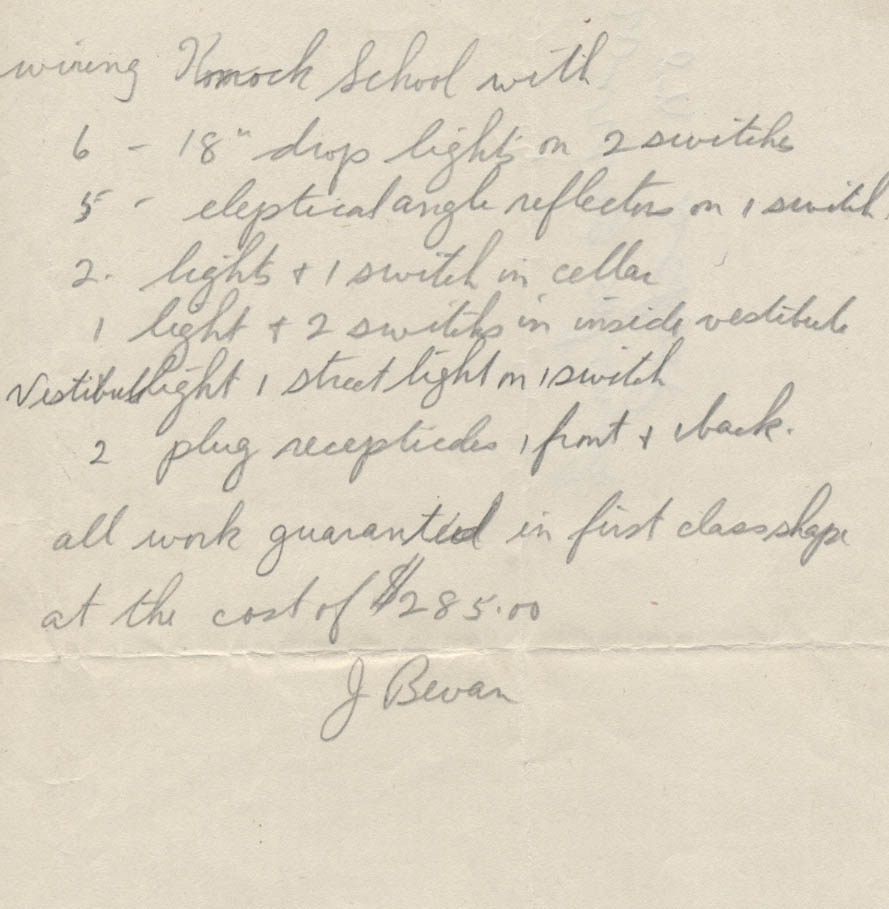 wiring Komock School with
6 - 18" drop lights on 2 switches
5 - eleptical angle reflectors on 1 switch.
2. lights + 1 switch in cellar
1 light + 2 switches in inside vestibule
Vestibule light 1 street light on 1 switch
2 plug recepticles 1 front + 1 back.
all work guaranteed in first class shape
at the cost of $285.00
J Bevan